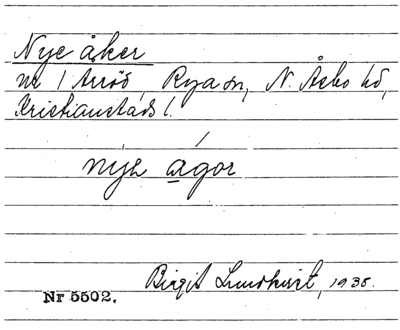 Nye åker
nr 1 Arröd, Rya sn, N. Åsbo hd,
Kristianstads l.
nýh agor
Birgit Lundkvist, 1935.
Nr 5502.